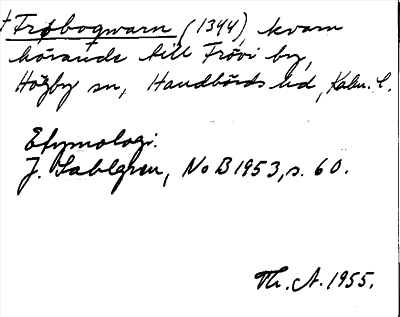 † Frøbogwarn (1344), kvarn
hörande till Frövi by,
Högby sn, Handbörds hd, Kalm. l.
Etymologi:
J. Sahlgren, NoB 1953, s. 60.
Th. A. 1955.